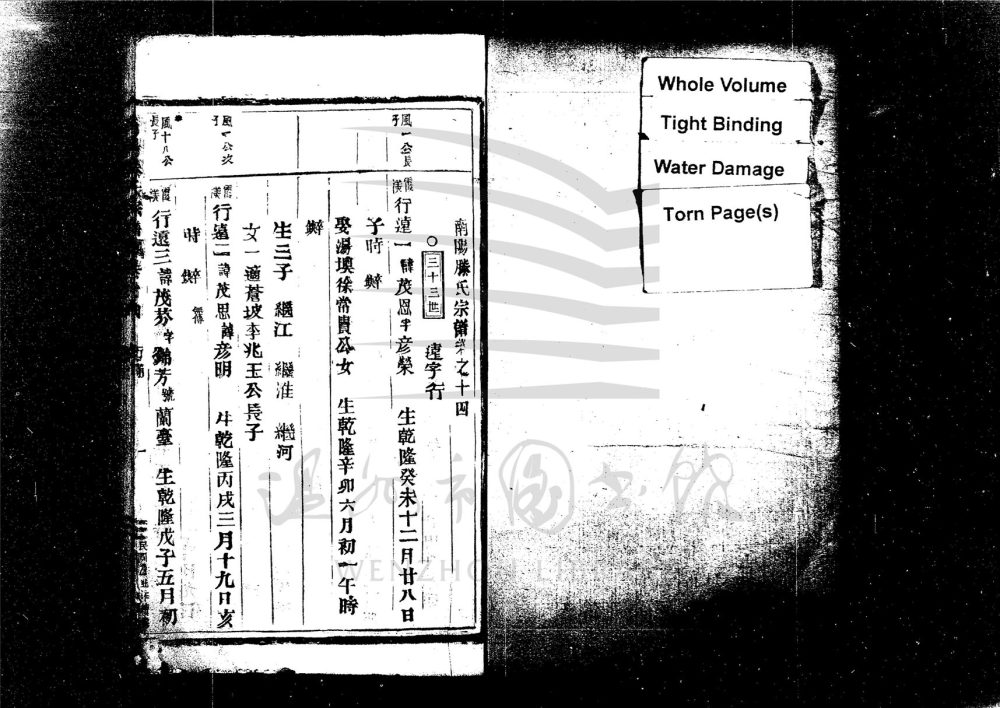 Whole Volume
Tight Binding
Water Damage
Torn Page(s)
南陽滕氏宗譜卷之十四
○三十三世 達字行
風一公長子
霞漢
行遠一諱茂恩字彥榮 生乾隆癸未十二月廿八日
子時 歿
娶湯墺徐常貴公女 生乾隆辛卯六月初一午時
歿
生三子 繼江 繼淮 繼河
女一適蒼坡李兆玉公長子
風一公次子
霞漢
行遠二諱茂思諱彥明 生乾隆丙戌三月十九日亥
時 歿
風十八公長子
霞漢
行遠三諱茂芬字錦芳號蘭臺 生乾隆戊子五月初
温州市图书馆
WENZHOU LIBRARY